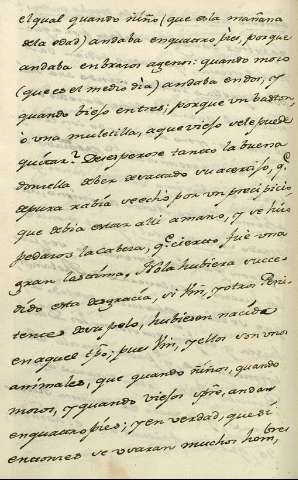 el qual quando niño (que es la mañana
de la edad) andaba en quatro pies, porque
andaba en brazos agenos: quando mozo
(que es el medio dia) andaba en dos, y
quando viejo en tres; porque un baston,
ò una muletilla, a que viejo se le puede
quitar? Desesperose tanto la buena
donzella de ver desatado su acertijo, q.e
de pura rabia se echò por un precipicio
que debia estar alli a mano, y se hizo
pedazos la cabeza, q.e cierto, fue una
gran lastima. No la hubiera succe-
dido esta desgracia, si Vm, y otros Peni-
tentes de su pelo, hubiesen nacido
en aquel tpõ; pues Vm, y ellos son unos
animales, que quando niños, quando
mozos, y quando viejos spre, andan
en quatro pies; y en verdad, que si
entonces se usaran muchos hom,bres